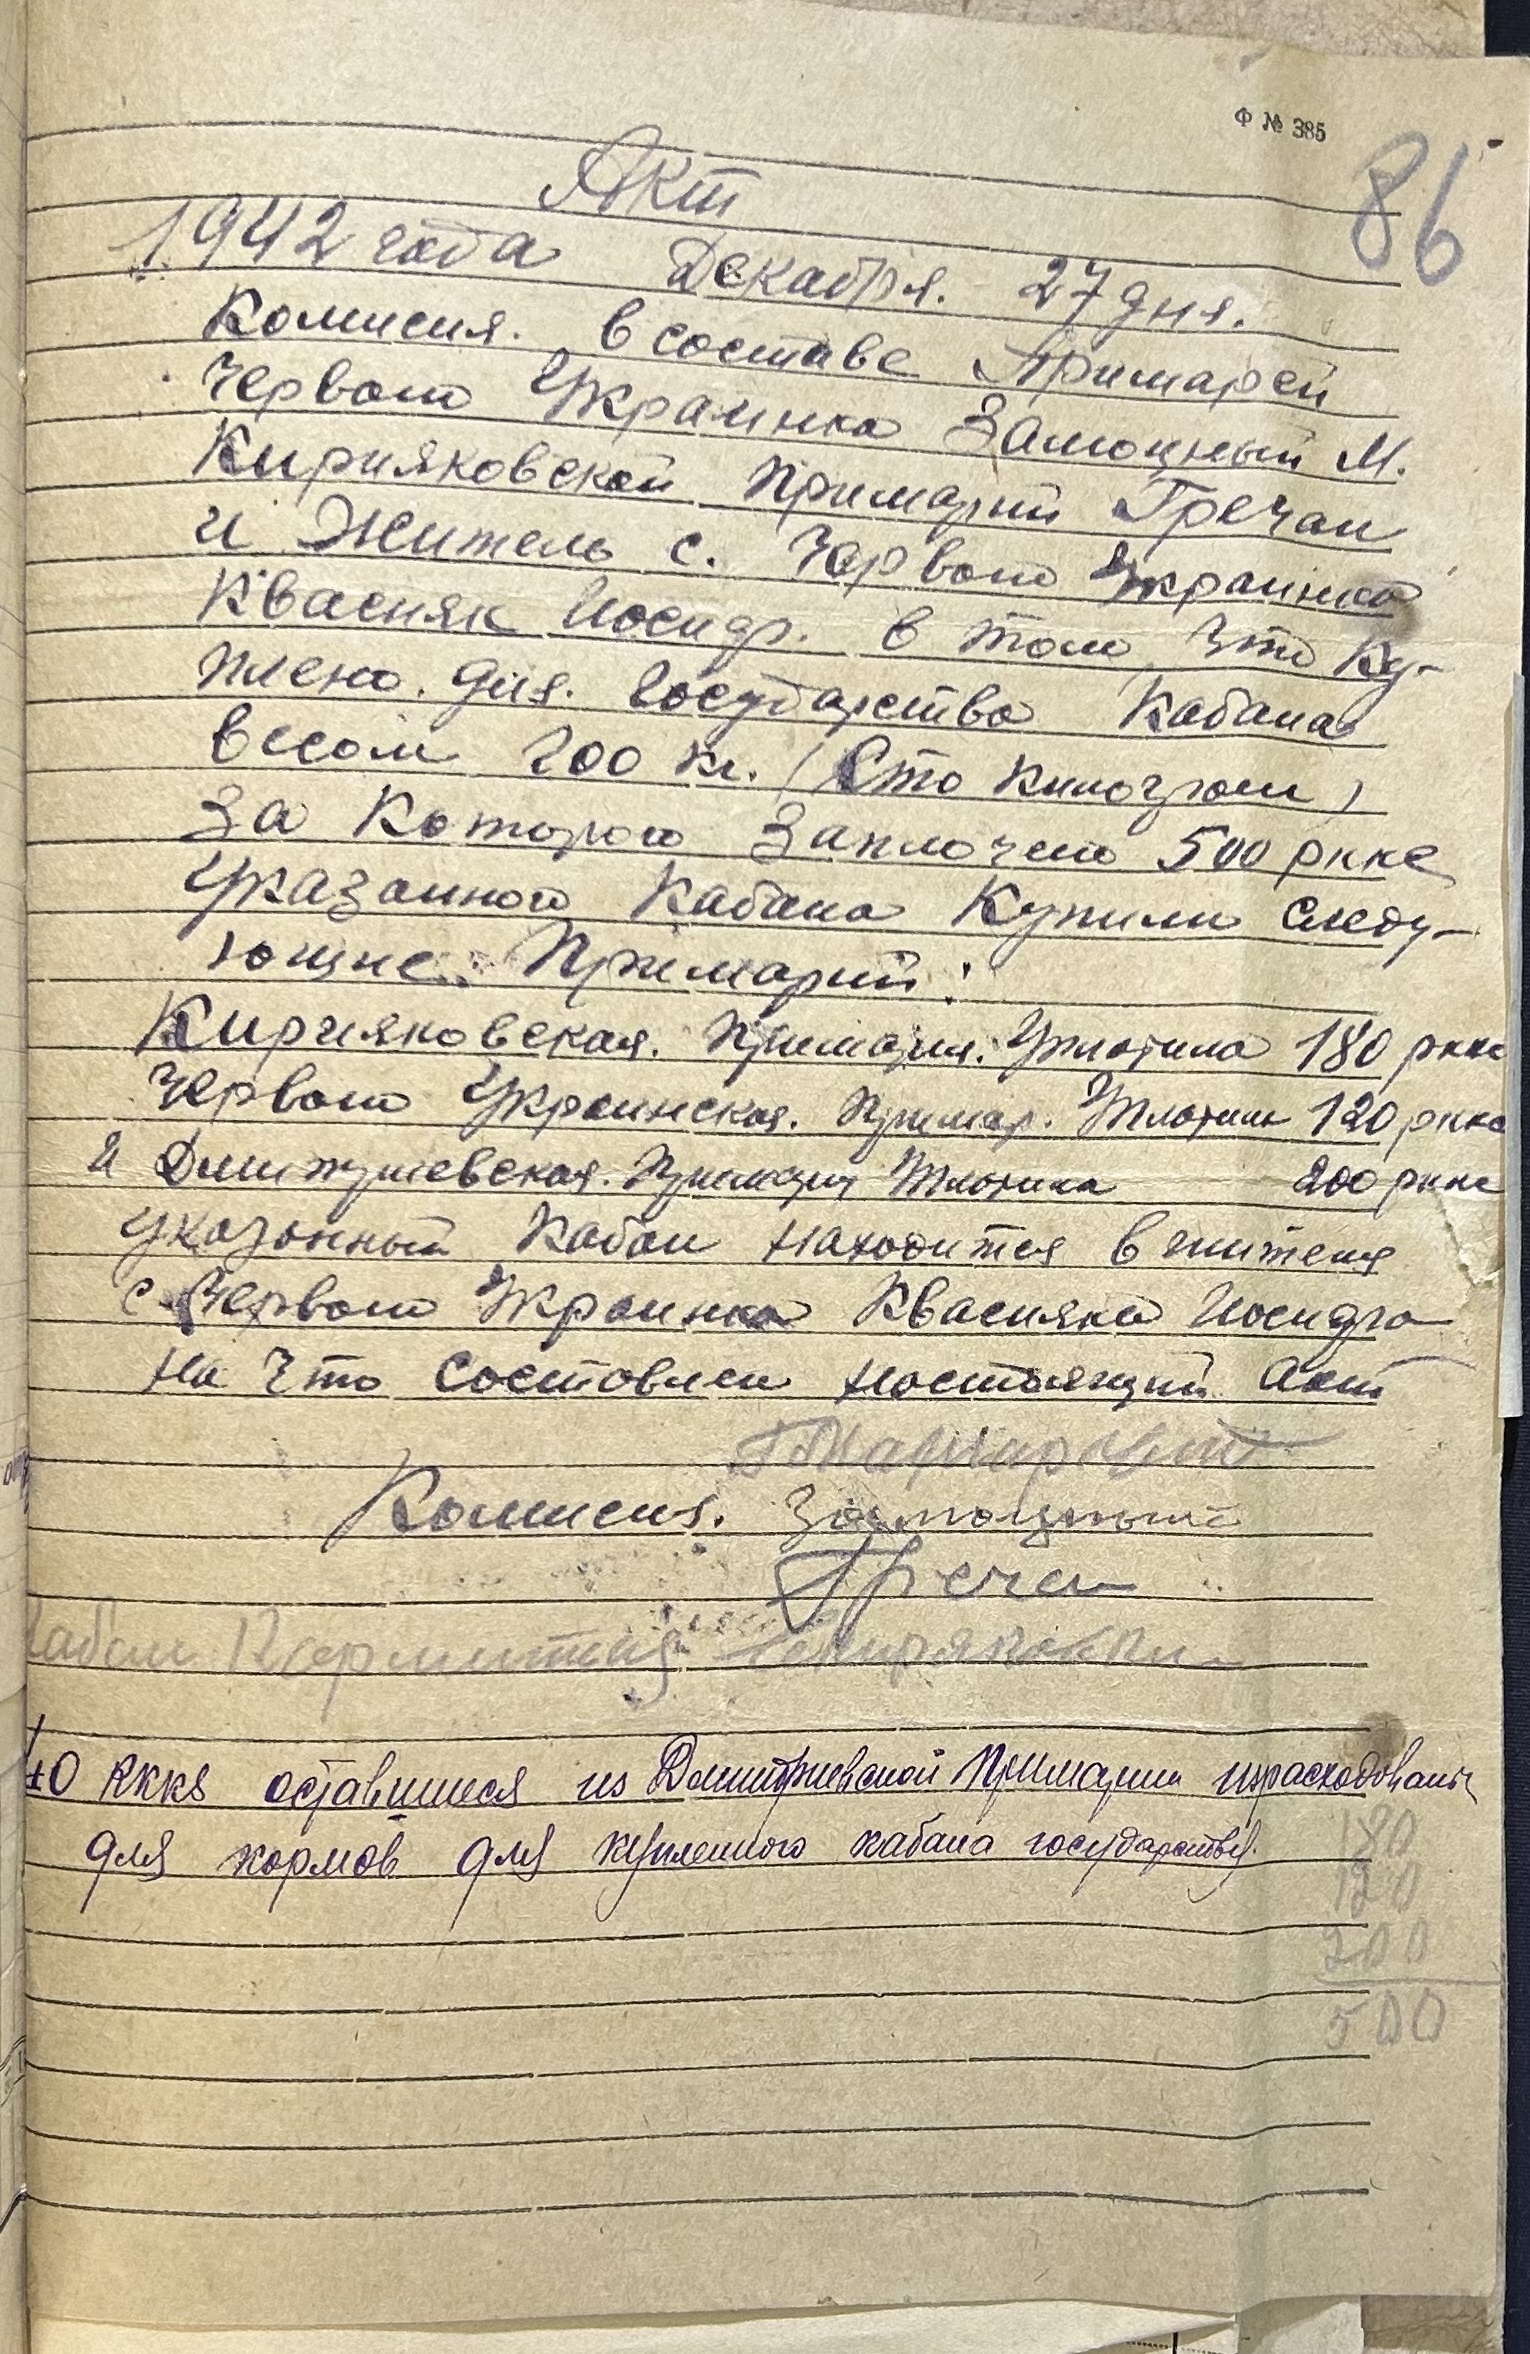 Ф № 385
86
Акт
1942 года Декабря. 27 дня.
Комисия. в составе Примарей
Червоно Украинка Замоцный М.
Кирияковской Примарии Гречан
и Житель с. Червоно Украинка
Квасняк Иосидр. в том что Ку-
плено. для. Государства Кабана
весом 100 кг. (Сто Килограм)
За Которого Заплочено 500 ркке
Указанного Кабана Купили следу-
ющие: Примарии:
Кирияковская. Примария. Уплотила 180 ркке
Червоно Украинская. Примар. Уплотила 120 ркке
и Дмитриевская. Примария Уплотила 200 ркке
Указанный Кабан находится в жителя
с. Червоно Украинка Квасняка Иосидра
на Что Составлен настоящий Акт
Комисия. Замоцный
Гречан
Кабан
40 RKKS оставшиеся из Дмитриевской Примарии израсходованы
для кормов для купленного кабана государству.
180
120
200
500